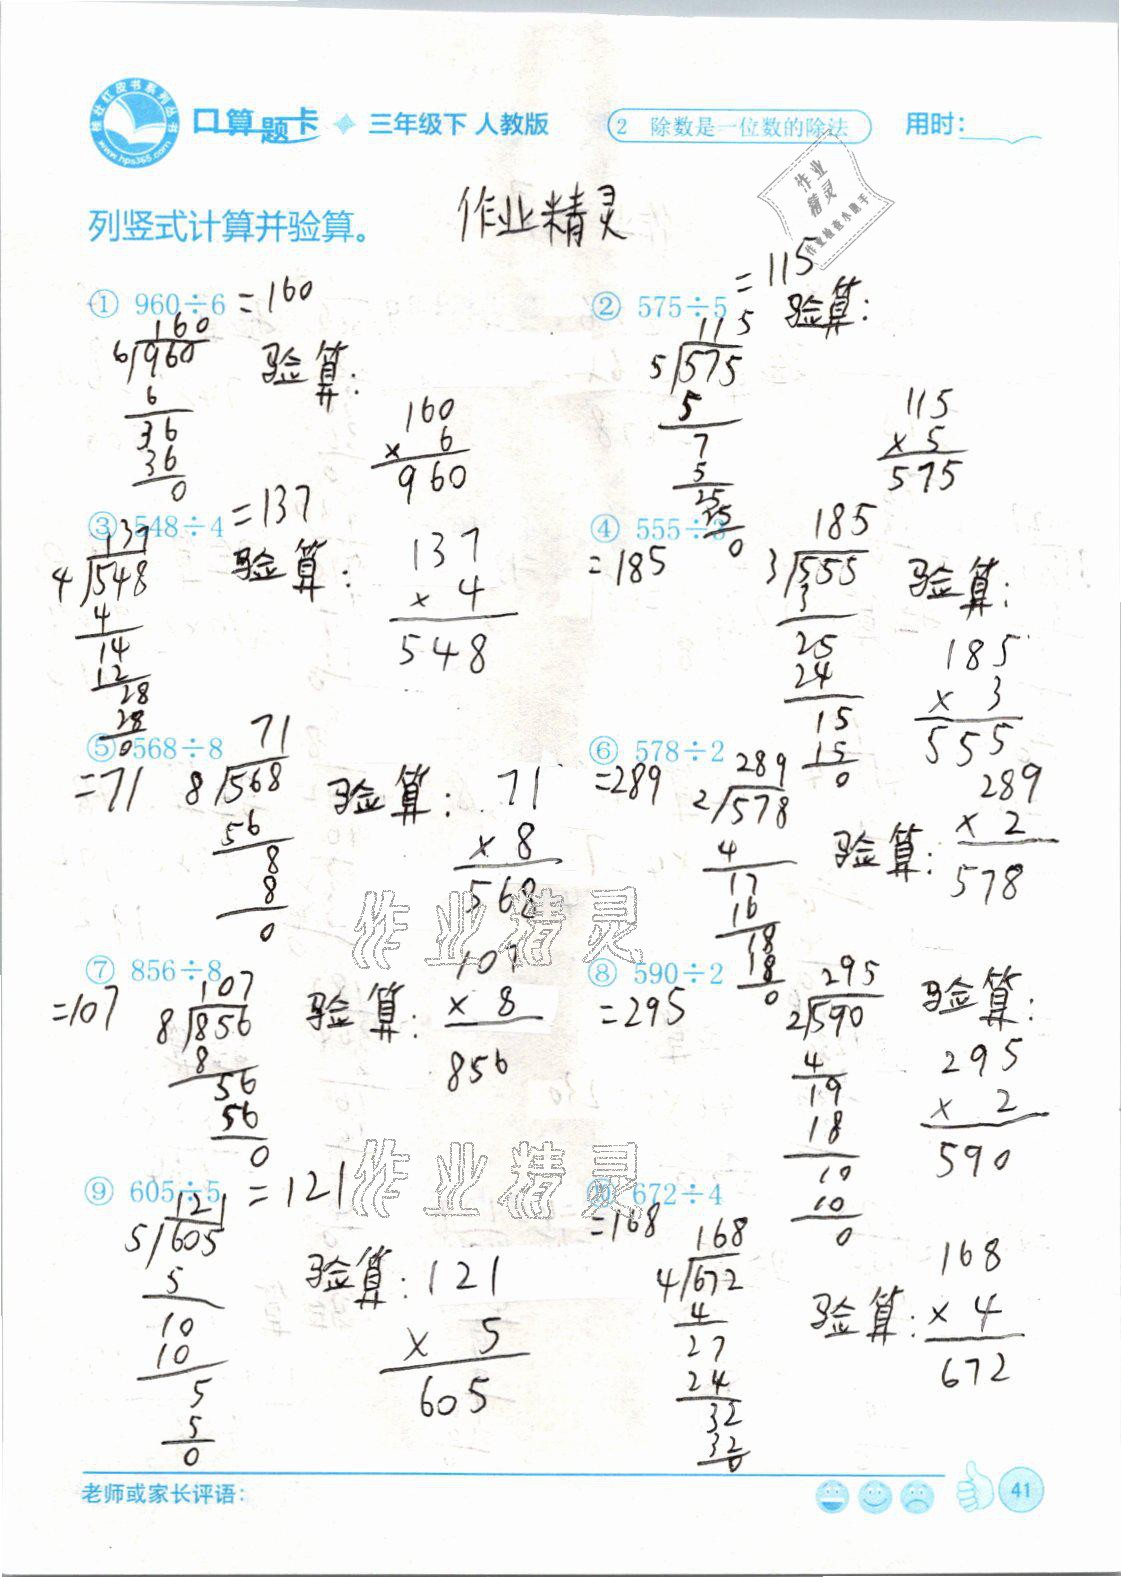 桃壮红皮书系列丛书
www.hps365.com
口算题卡 三年级下 人教版
2 除数是一位数的除法
用时:
作业精灵
作业检查小助手
列竖式计算并验算。
作业精灵
① 960÷6 =160
160
6 960
6
36
36
0
验算:
160
× 6
960
② 575÷5 =115
115
5 575
5
7
5
25
25
0
验算:
115
× 5
575
③ 548÷4 =137
137
4 548
4
14
12
28
28
0
验算:
137
× 4
548
④ 555÷3
=185
185
3 555
3
25
24
15
15
0
验算:
185
× 3
555
⑤ 568÷8
=71
71
8 568
56
8
8
0
验算:
71
× 8
568
⑥ 578÷2
=289
289
2 578
4
17
16
18
18
0
验算:
289
× 2
578
作业精灵
⑦ 856÷8
=107
107
8 856
8
56
56
0
验算:
107
× 8
856
⑧ 590÷2
=295
295
2 590
4
19
18
10
10
0
验算:
295
× 2
590
作业精灵
⑨ 605÷5 =121
121
5 605
5
10
10
5
5
0
验算:
121
× 5
605
⑩ 672÷4
=168
168
4 672
4
27
24
32
32
0
验算:
168
× 4
672
老师或家长评语:
41